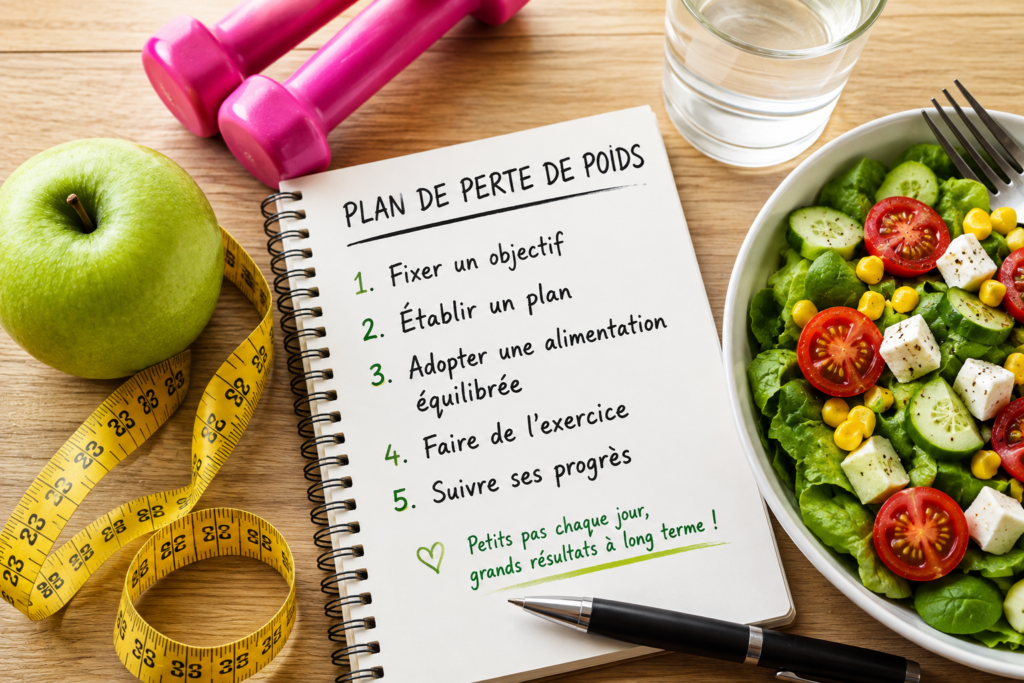 PLAN DE PERTE DE POIDS
1. Fixer un objectif
2. Établir un plan
3. Adopter une alimentation
équilibrée
4. Faire de l'exercice
5. Suivre ses progrès
Petits pas chaque jour,
grands résultats à long terme !